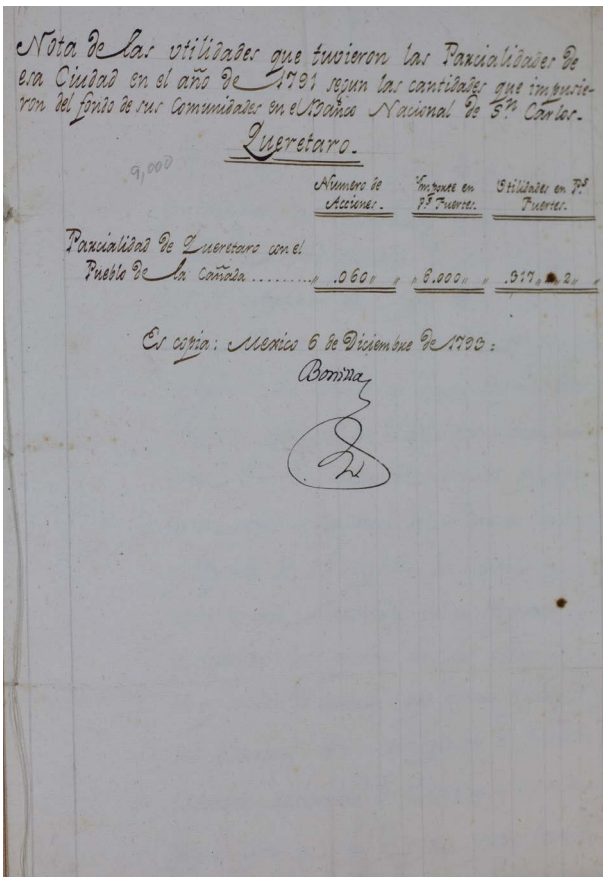 Nota de las utilidades que tuvieron las Parcialidades de
esa Ciudad en el año de 1791 segun las cantidades que impusie-
ron del fondo de sus Comunidades en el Banco Nacional de Sn. Carlos.
Queretaro.
9,000
Numero de Acciones. Importe en ps. Fuertes. Utilidades en Ps. Fuertes.
Parcialidad de Queretaro con el
Pueblo de la Cañada ......... „ .060 „ „ 6.000 „ „ .317 „ 2 „ „
Es copia: Mexico 6 de Diciembre de 1793:
Bonilla